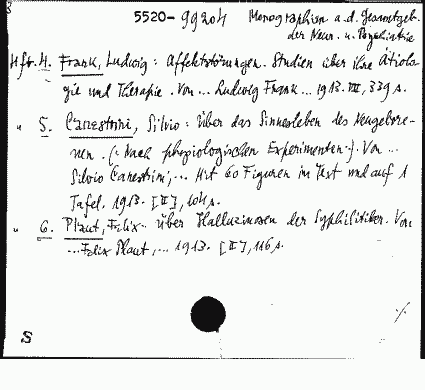 5520-99204 Monographien a. d. Gesamtgeb.
der Neur. u. Psychiatrie
Hft. 4. Frank, Ludwig: Affektstörungen. Studien über ihre Ätiolo-
gie und Therapie. Von ... Ludwig Frank ... 1913. VIII, 339 S.
" 5. Canestrini, Silvio: Über das Sinnesleben des Neugebore-
nen. (: Nach physiologischen Experimenten :). Von ...
Silvio Canestrini, ... Mit 60 Figuren im Text und auf 1
Tafel. 1913. [II], 104 S.
" 6. Plaut, Felix: Über Halluzinosen der Syphilitiker. Von
... Felix Plaut, ... 1913. [II], 116 S.
S